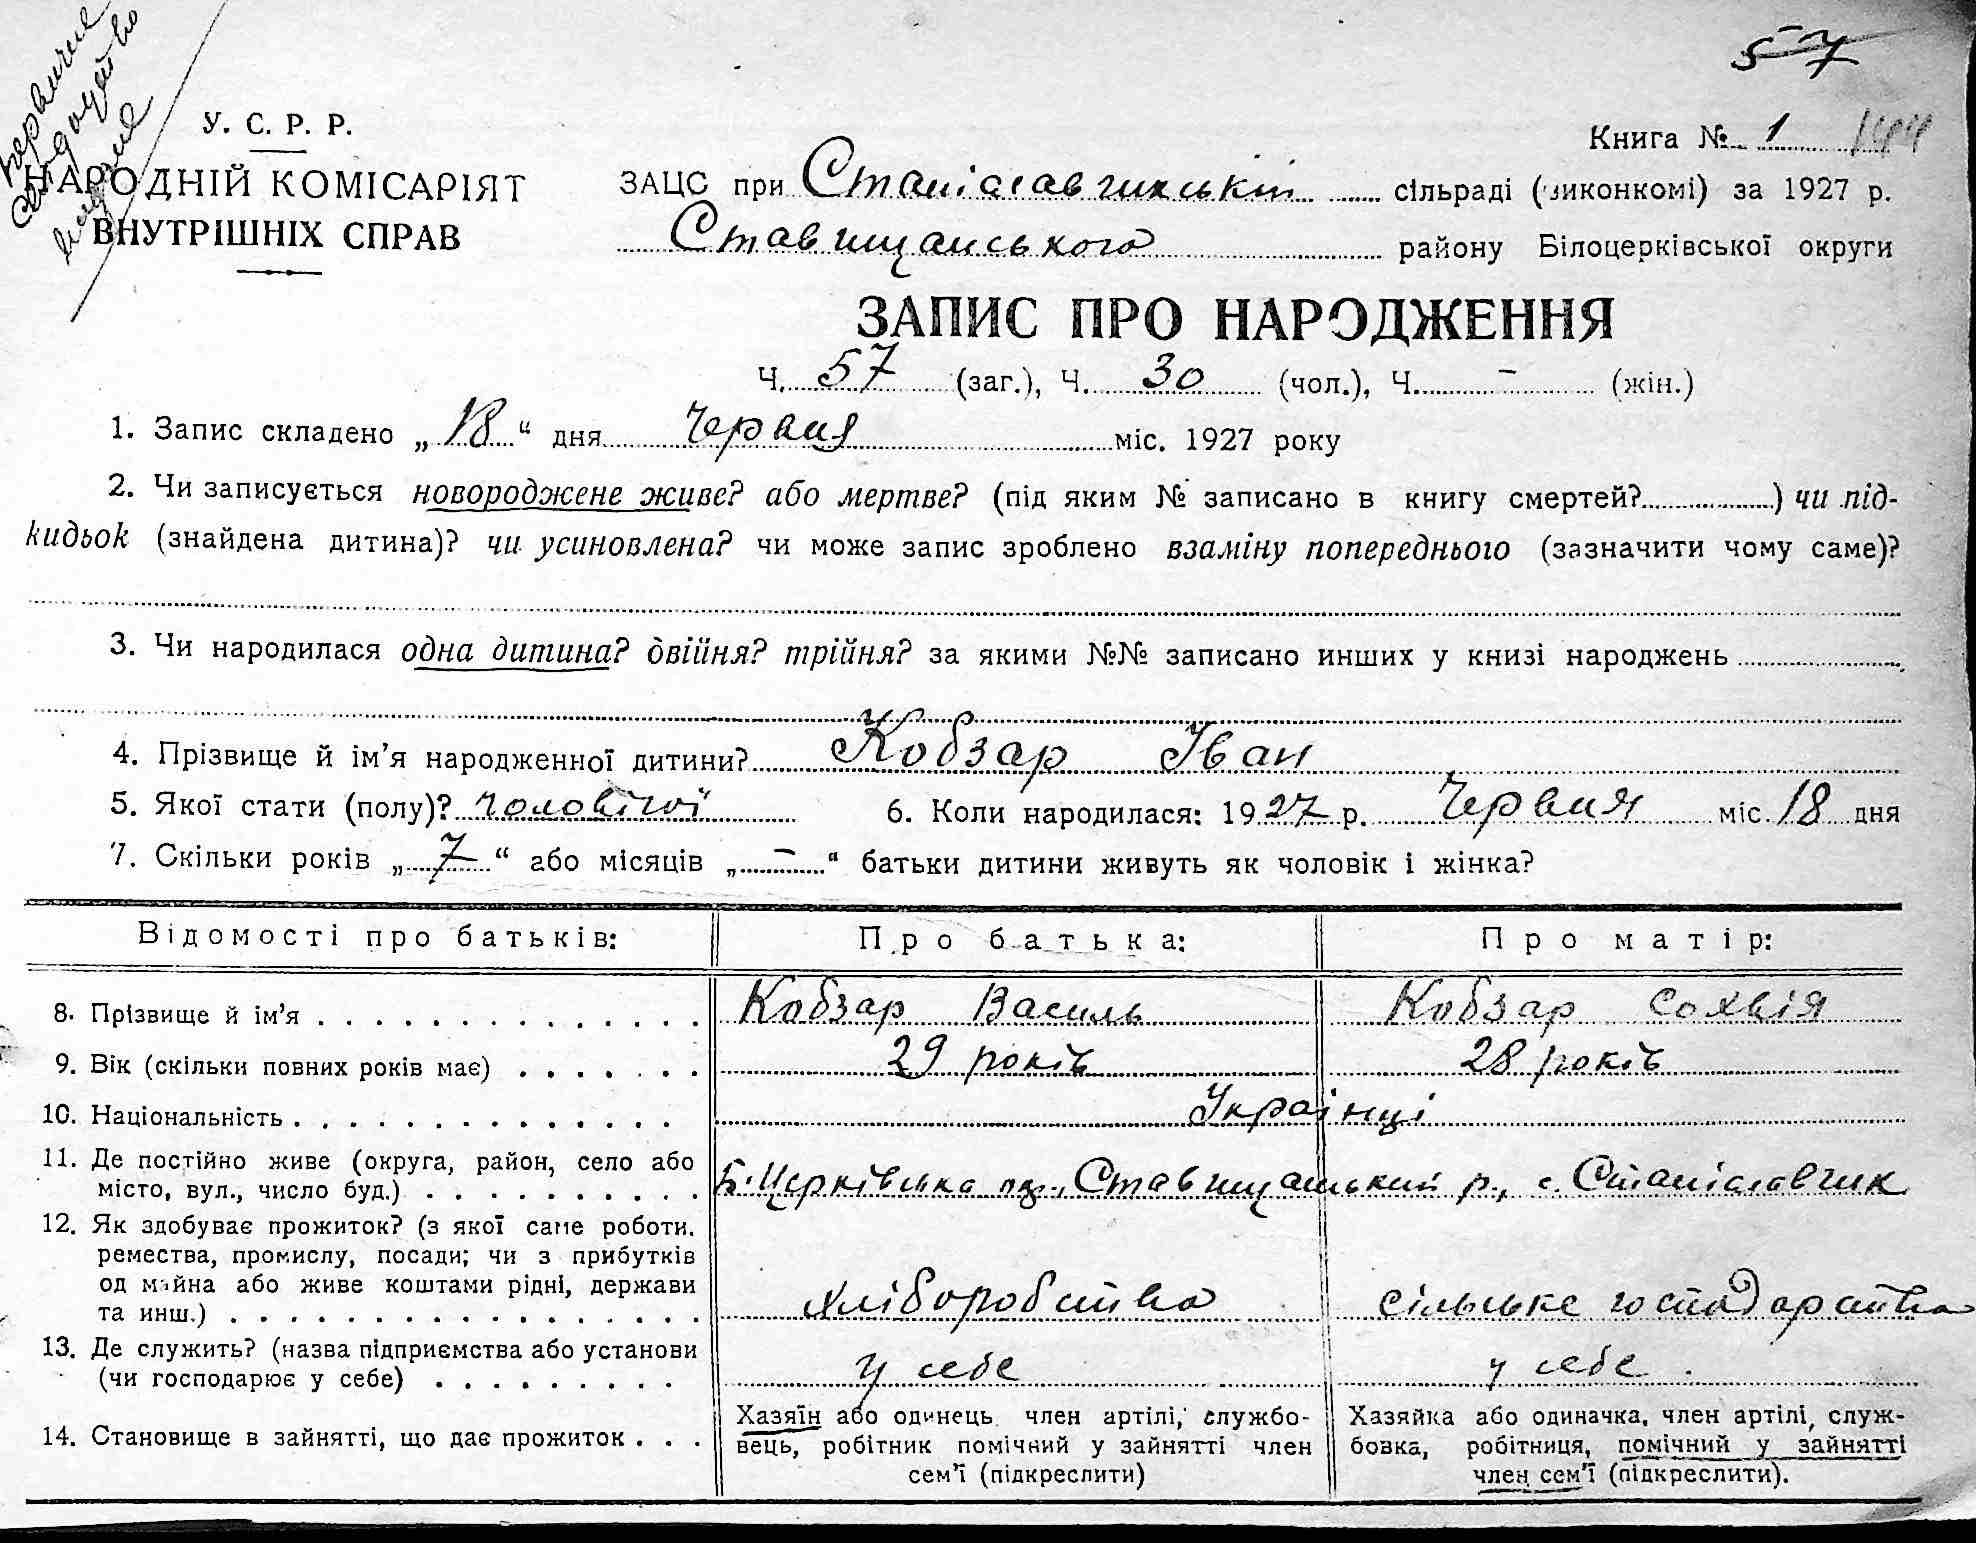 57
У. С. Р. Р.
НАРОДНІЙ КОМІСАРІЯТ
ВНУТРІШНІХ СПРАВ
Книга № 1
ЗАЦС при Станіславчинській сільраді (виконкомі) за 1927 р.
Ставищанського району Білоцерківської округи
ЗАПИС ПРО НАРОДЖЕННЯ
Ч. 57 (заг.), Ч. 30 (чол.), Ч. - (жін.)
1. Запис складено „18“ дня Червня міс. 1927 року
2. Чи записується новороджене живе? або мертве? (під яким № записано в книгу смертей?) чи під-
кидьок (знайдена дитина)? чи усиновлена? чи може запис зроблено взаміну попереднього (зазначити чому саме)?
3. Чи народилася одна дитина? двійня? трійня? за якими №№ записано инших у книзі народжень
4. Прізвище й ім’я народженної дитини? Кобзар Іван
5. Якої стати (полу)? чоловічої 6. Коли народилася: 1927 р. Червня міс. 18 дня
7. Скільки років „7“ або місяців „-“ батьки дитини живуть як чоловік і жінка?
Відомості про батьків: Про батька: Про матір:
8. Прізвище й ім’я Кобзар Василь Кобзар Сохвія
9. Вік (скільки повних років має) 29 років 28 років
10. Національність Українці
11. Де постійно живе (округа, район, село або
місто, вул., число буд.) Б.Церківська окр., Ставищанський р., с. Станіславчик
12. Як здобуває прожиток? (з якої саме роботи.
ремества, промислу, посади; чи з прибутків
од майна або живе коштами рідні, держави
та инш.) хліборобства сільське господарства
13. Де служить? (назва підприємства або установи
(чи господарює у себе) у себе у себе.
14. Становище в зайнятті, що дає прожиток
Хазяїн або одинець член артілі, службо-
вець, робітник помічний у зайнятті член
сем’ї (підкреслити)
Хазяйка або одиначка, член артілі, служ-
бовка, робітниця, помічний у зайнятті
член сем’ї (підкреслити).